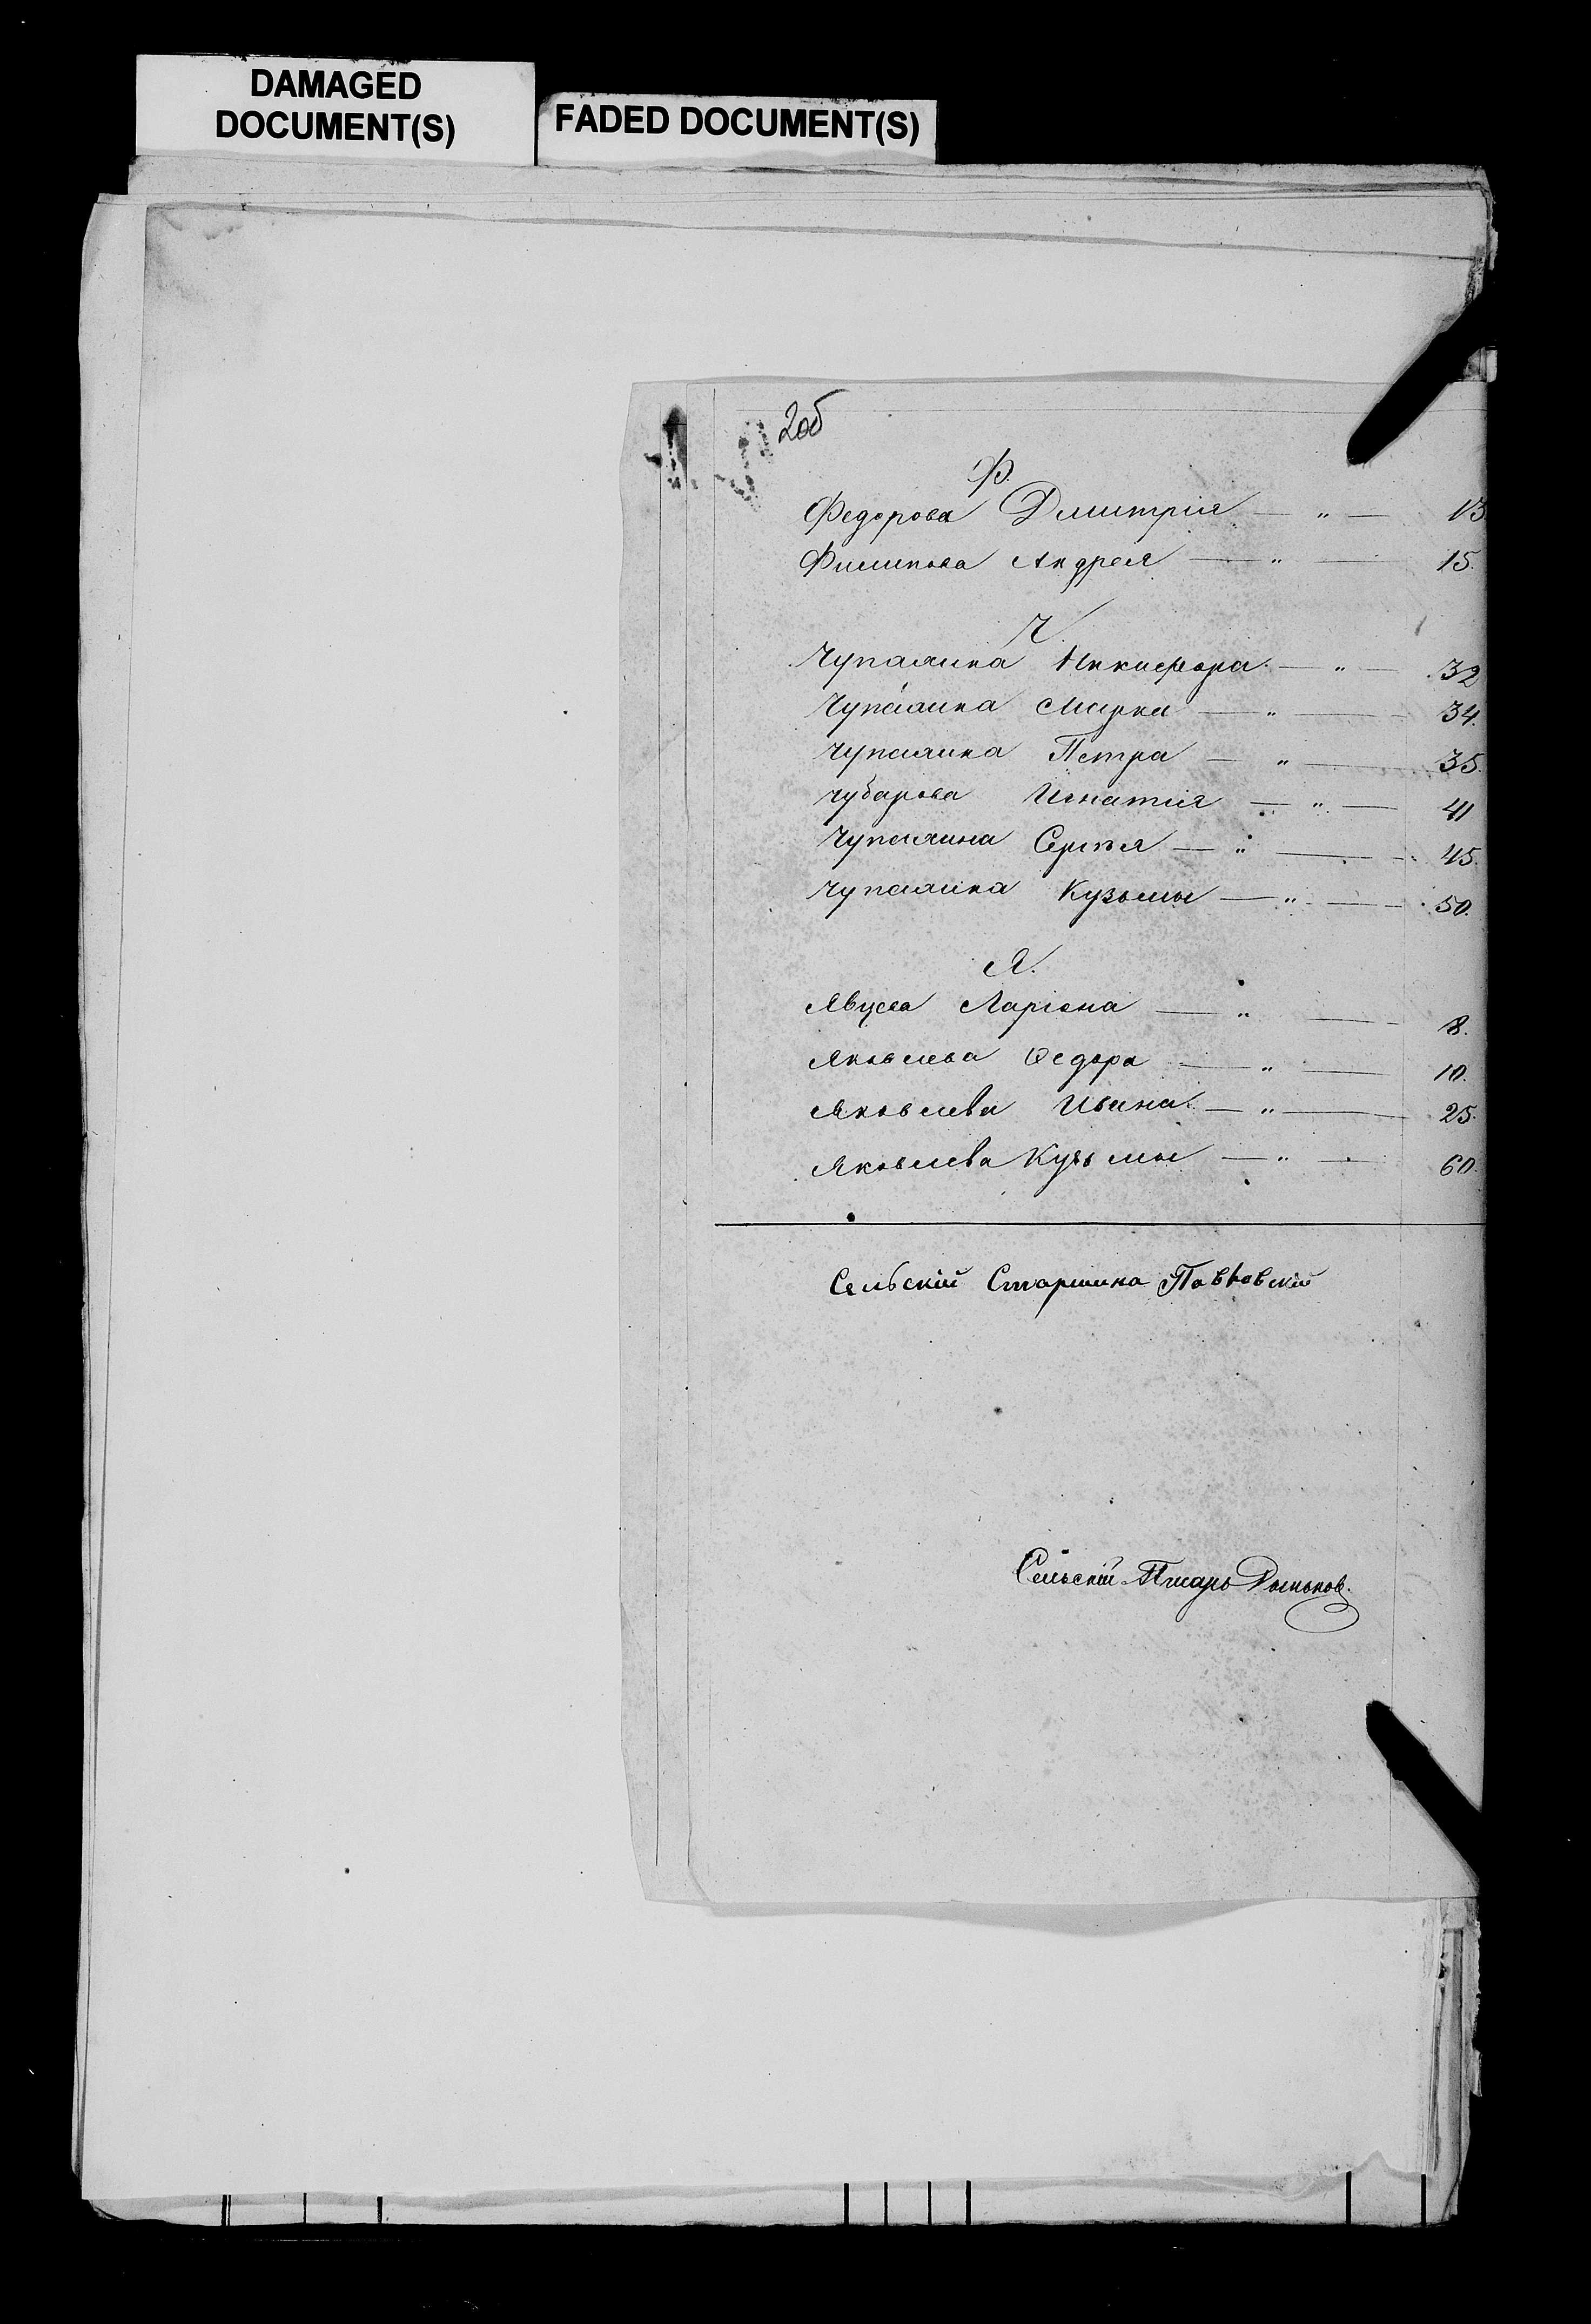 DAMAGED
DOCUMENT(S)
FADED DOCUMENT(S)
2об
Ф.
Федорова Дмитрія — „ — 13
Филипова Андрея — „ — 15.
Ч
Чупахина Никифора — „ — 32
Чупахина Марка — „ — 34.
Чупахина Петра — „ — 35.
Чубарова Игнатія — „ — 41
Чупахина Сергѣя — „ — 45.
Чупахина Кузьмы — „ — 50.
Я.
Ларіона — „ — 8.
Яковлева Ѳедора — „ — 10.
Яковлева Ивана — „ — 25.
Яковлева Кузьмы — „ — 60.
Сельскій Старшина
Сельскій Писарь